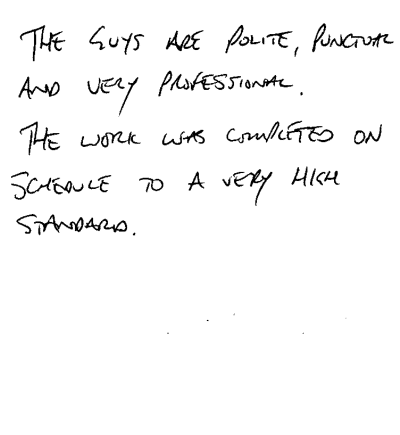 THE GUYS ARE POLITE, PUNCTUAL
AND VERY PROFESSIONAL.
THE WORK WAS COMPLETED ON
SCHEDULE TO A VERY HIGH
STANDARD.